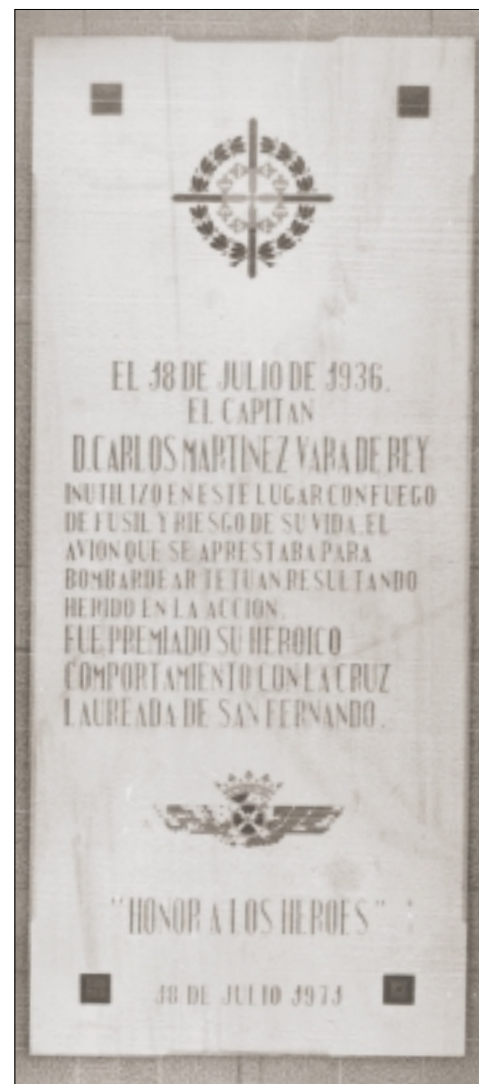 EL 18 DE JULIO DE 1936.
EL CAPITAN
D.CARLOS MARTINEZ VARA DE REY
INUTILIZO EN ESTE LUGAR CON FUEGO
DE FUSIL Y RIESGO DE SU VIDA, EL
AVION QUE SE APRESTABA PARA
BOMBARDEAR TETUAN RESULTANDO
HERIDO EN LA ACCION.
FUE PREMIADO SU HEROICO
COMPORTAMIENTO CON LA CRUZ
LAUREADA DE SAN FERNANDO.
"HONOR A LOS HEROES"
18 DE JULIO 1971